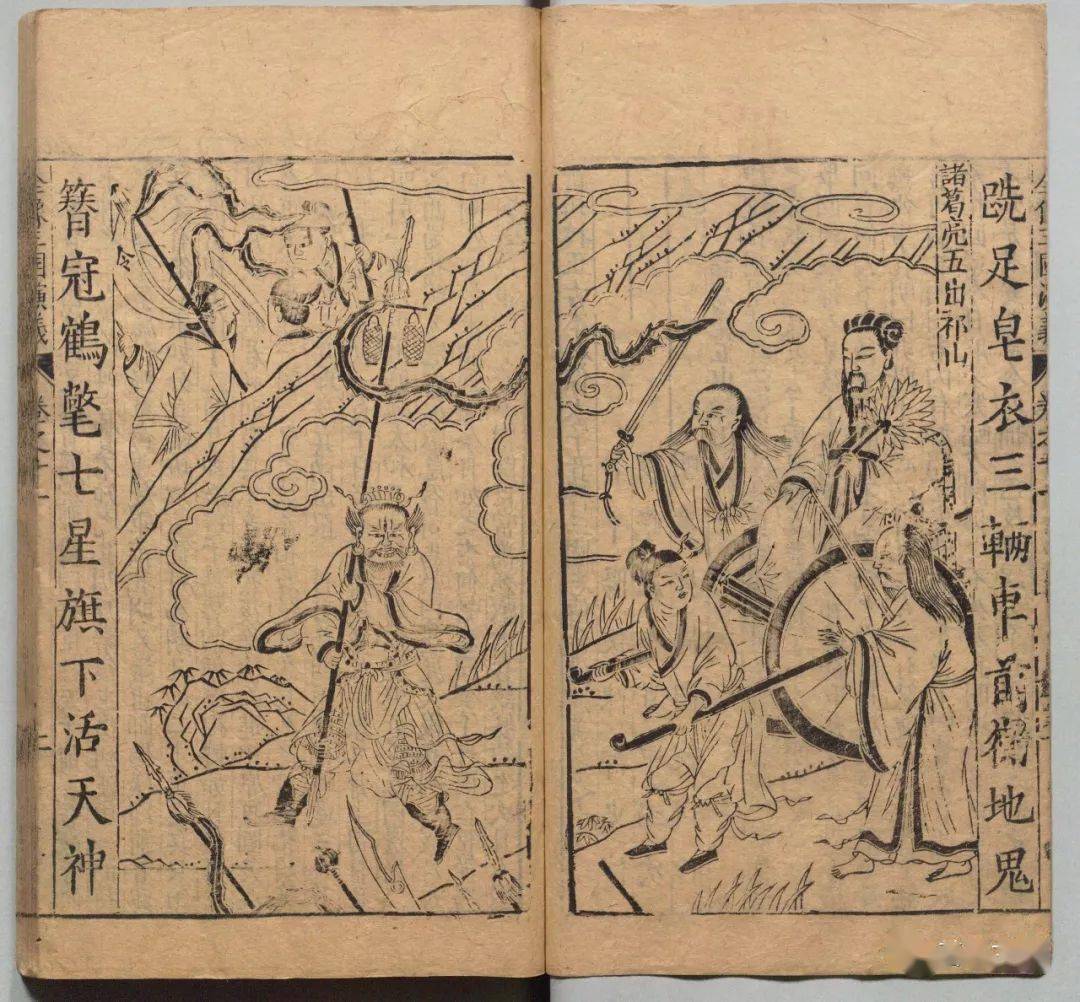 跣足皂衣三輛車前衛地鬼
諸葛亮五出祁山
簪冠鶴氅七星旗下活天神
令